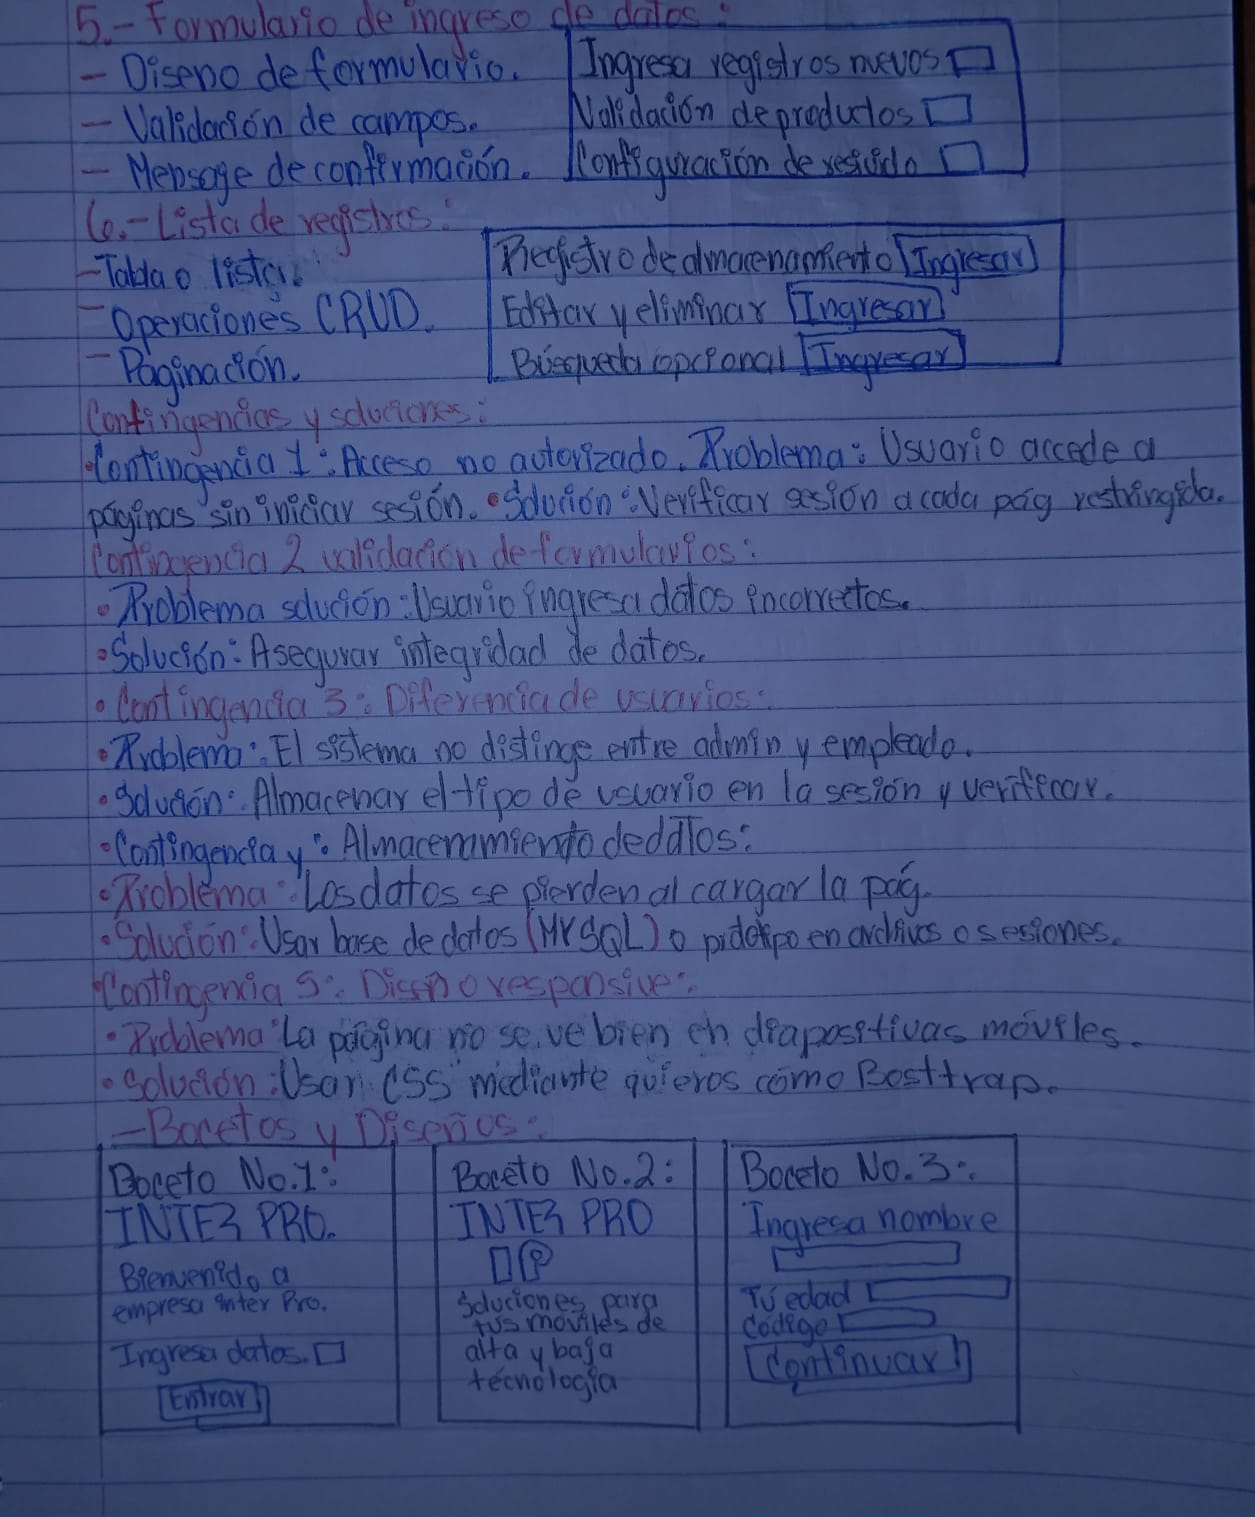 5.- Formulario de ingreso de datos:
- Diseño de formulario.
- Validación de campos.
- Mensage de confirmación.
Ingresa registros nuevos
Validación de productos
Configuración de
6.- Lista de registros:
- Tabla o lista.
- Operaciones CRUD.
- Paginación.
Registro de almacenamiento Ingresar
Editar y eliminar Ingresar
Búsqueda opcional Ingresar
Contingencias y soluciones:
• Contingencia 1: Acceso no autorizado. Problema: Usuario accede a
páginas sin iniciar sesión. • Solución: Verificar sesión a cada pág restringida.
Contingencia 2 validación de formularios:
• Problema solución: Usuario ingresa datos incorrectos.
• Solución: Asegurar integridad de datos.
• Contingencia 3: Diferencia de usuarios:
• Problema: El sistema no distinge entre admin y empleado.
• Solución: Almacenar el tipo de usuario en la sesión y verificar.
• Contingencia y: Almacenamiento de datos:
• Problema: Los datos se pierden al cargar la pág.
• Solución: Usar base de datos (MYSQL) o prototipo en archivos o sesiones.
• Contingencia 5: Diseño responsive:
• Problema: La página no se ve bien en diapositivas móviles.
• Solución: Usar CSS mediante quieros cómo Bosttrap.
- Bocetos y Diseños:
Boceto No.1:
INTER PRO.
Bienvenido a
empresa inter Pro.
Ingresa datos.
Entrar
Boceto No.2:
INTER PRO
Soluciones para
tus móviles de
alta y baja
tecnología
Boceto No.3:
Ingresa nombre
Tú edad
Código
Continuar